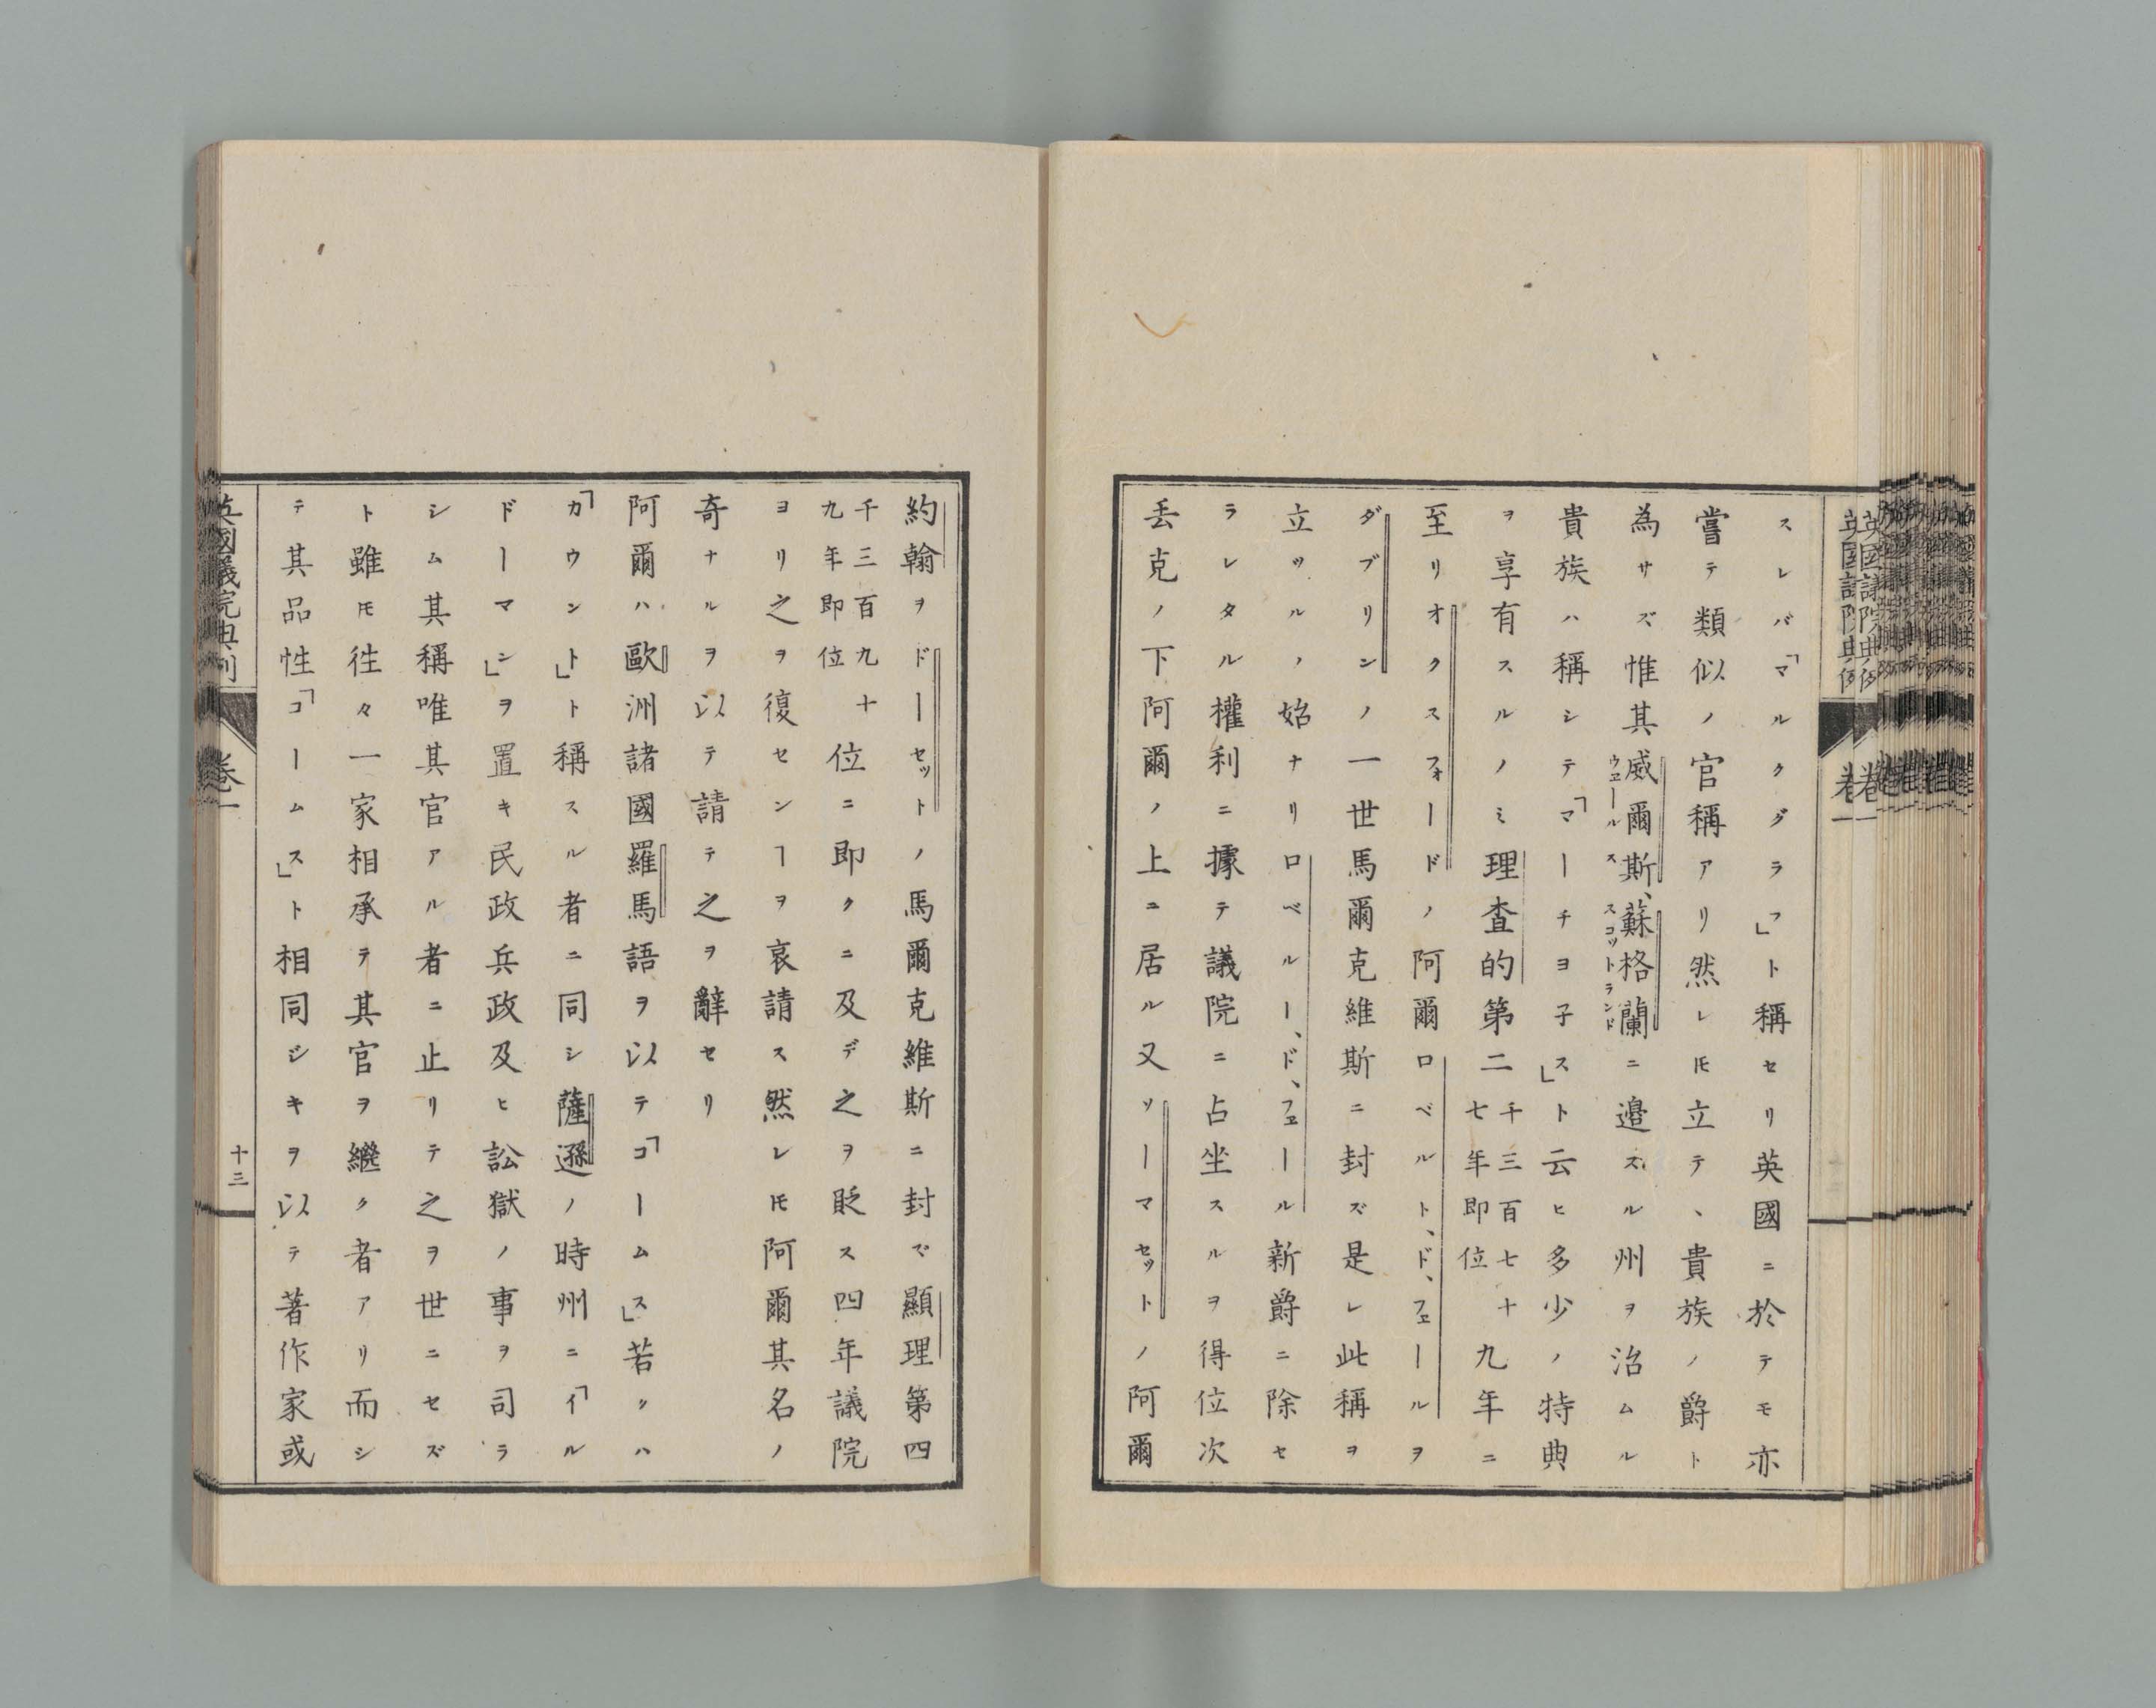 スレバ「マルクグラフ」ト稱セリ英國ニ於テモ亦
嘗テ類似ノ官稱アリ然レ𪜈立テ、貴族ノ爵ト
為サズ惟其威爾斯、蘇格蘭ニ邉スル州ヲ治ムル
ウヱールス
スコットランド
貴族ハ稱シテ「マーチヨ子ス」ト云ヒ多少ノ特典
ヲ享有スルノミ理査的第二千三百七十七年即位九年ニ
至リオクスフォードノ阿爾ロベルト、ド、フェールヲ
ダブリンノ一世馬爾克維斯ニ封ズ是レ此稱ヲ
立ツルノ始ナリロベルー、ド、フェール新爵ニ除セ
ラレタル權利ニ據テ議院ニ占坐スルヲ得位次
丢克ノ下阿爾ノ上ニ居ル又ソーマセットノ阿爾
約翰ヲドーセットノ馬爾克維斯ニ封ズ顯理第四
千三百九十九年即位位ニ即クニ及デ之ヲ貶ス四年議院
ヨリ之ヲ復センヿヲ哀請ス然レ𪜈阿爾其名ノ
奇ナルヲ以テ請テ之ヲ辭セリ
阿爾ハ歐洲諸國羅馬語ヲ以テ「コームス」若クハ
「カウント」ト稱スル者ニ同シ薩遜ノ時州ニ「イル
ドーマン」ヲ置キ民政兵政及ヒ訟獄ノ事ヲ司ラ
シム其稱唯其官アル者ニ止リテ之ヲ世ニセズ
ト雖𪜈徃々一家相承テ其官ヲ繼ク者アリ而シ
テ其品性「コームス」ト相同ジキヲ以テ著作家或
英國議院典例
卷一
十三